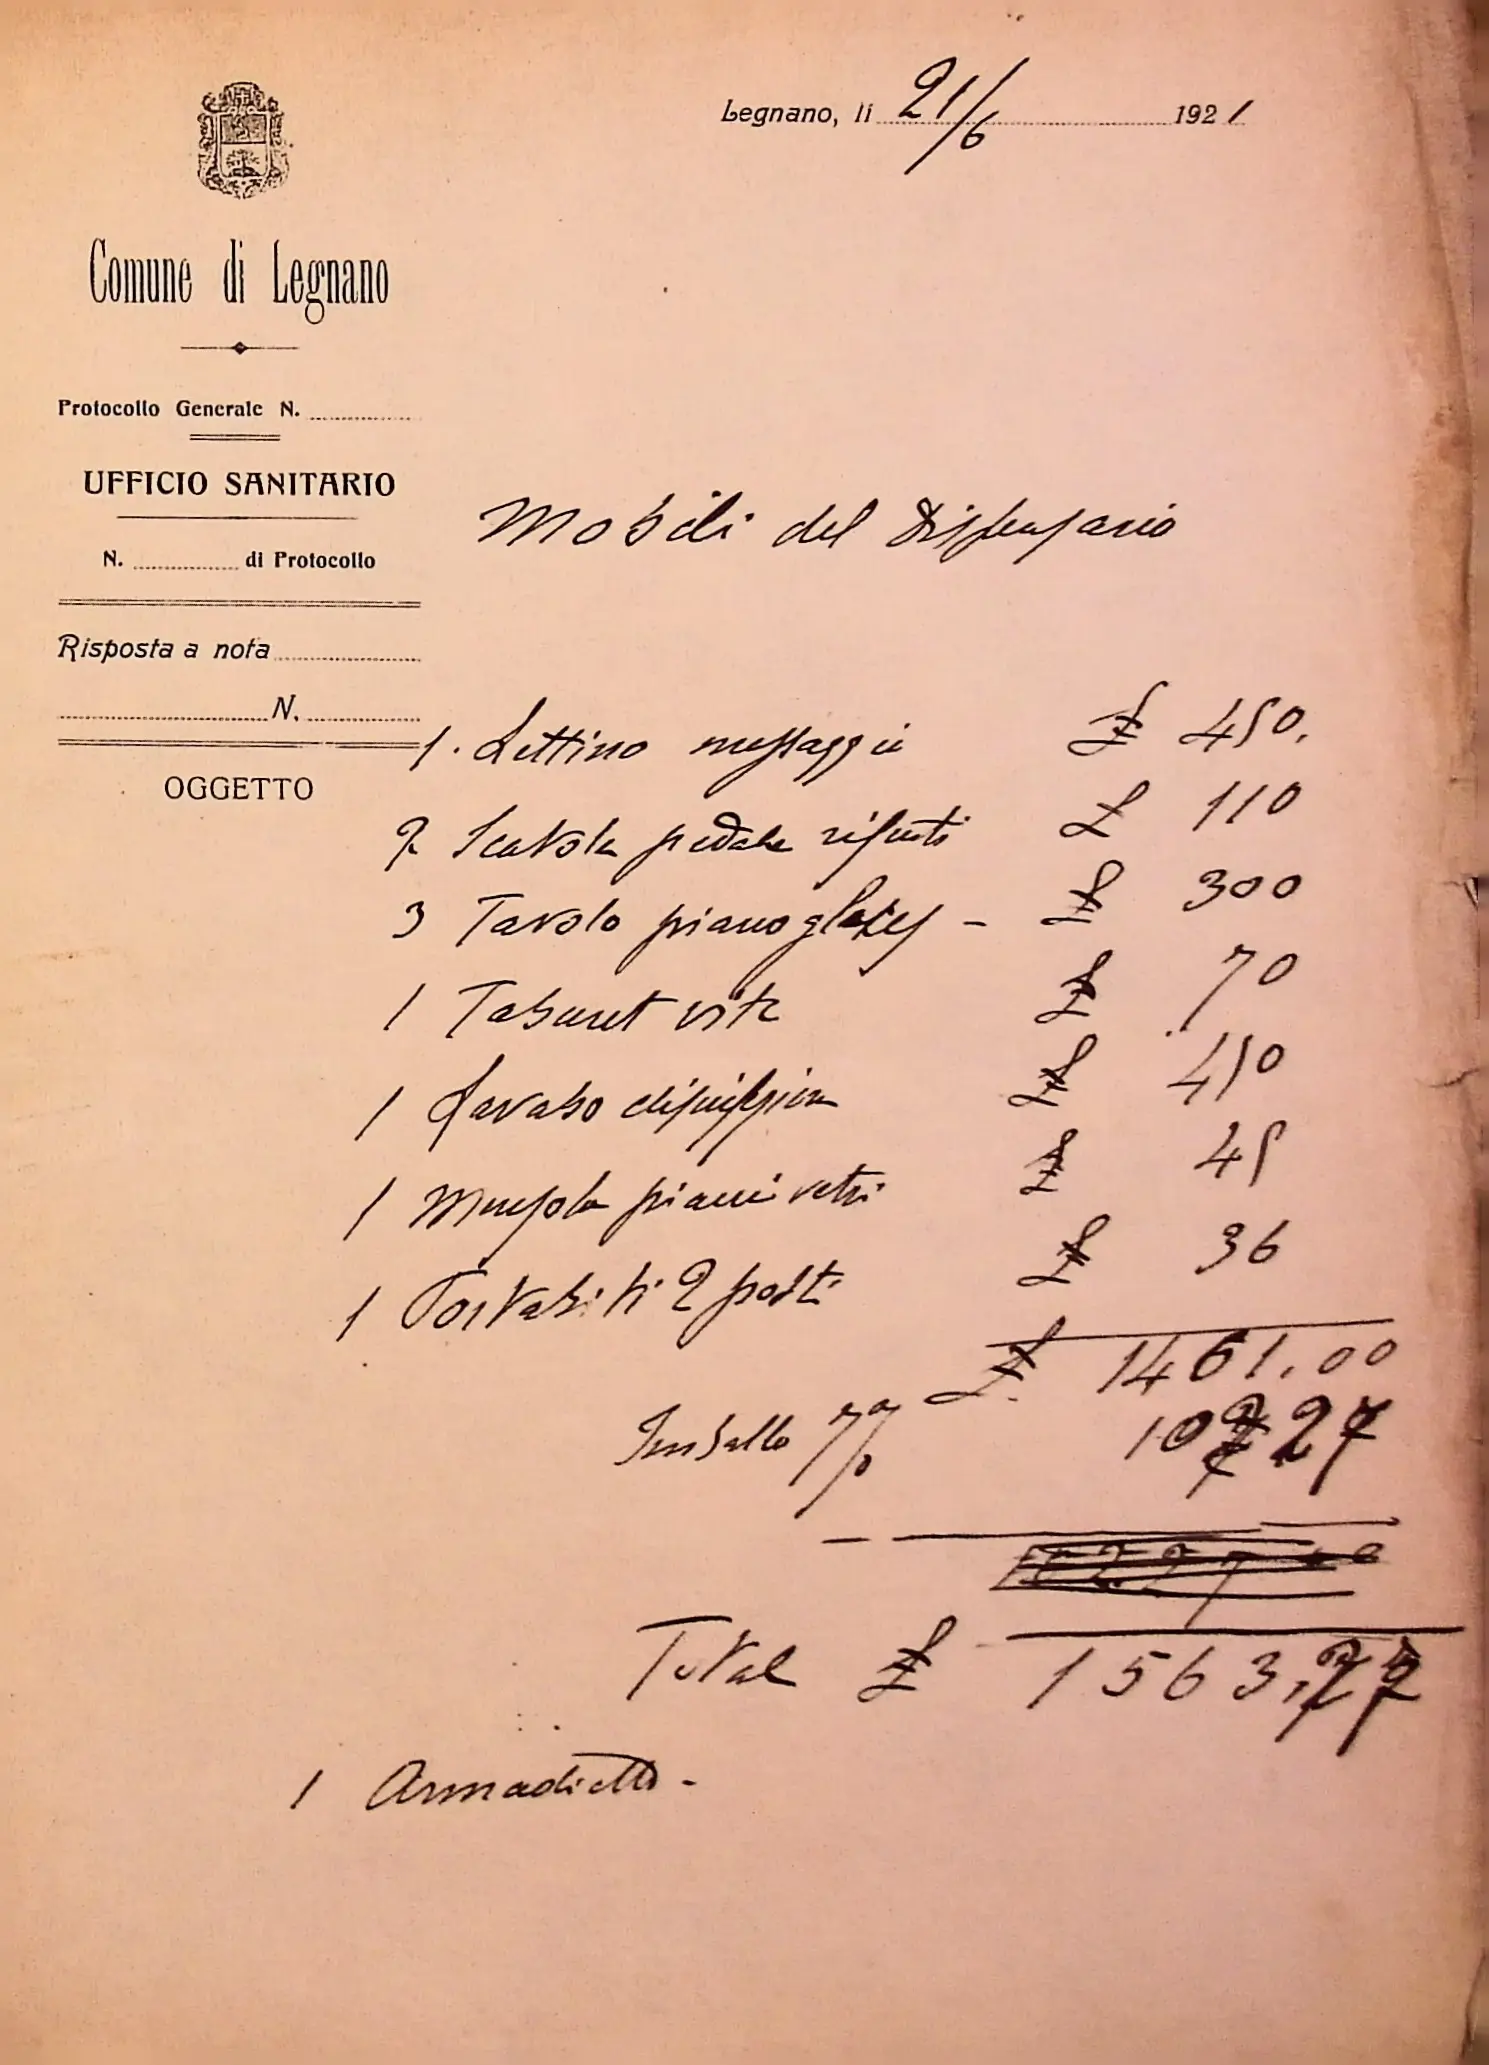 Legnano, li 21/6 1921
Comune di Legnano
Protocollo Generale N.
UFFICIO SANITARIO
N. di Protocollo
Risposta a nota
N.
OGGETTO
Mobili del Dispensario
1. Lettino massaggii £ 450.
2 Scatola pedale rifiuti £ 110
3 Tavolo piano glases - £ 300
1 Taburet vite £ 70
1 Lavabo £ 450
1 Mensola piani vetri £ 45
1 Portabiti 2 posti £ 36
£ 1461.00
Imballo 7% 102 27
Total £ 1563,27
1 Armadietto -